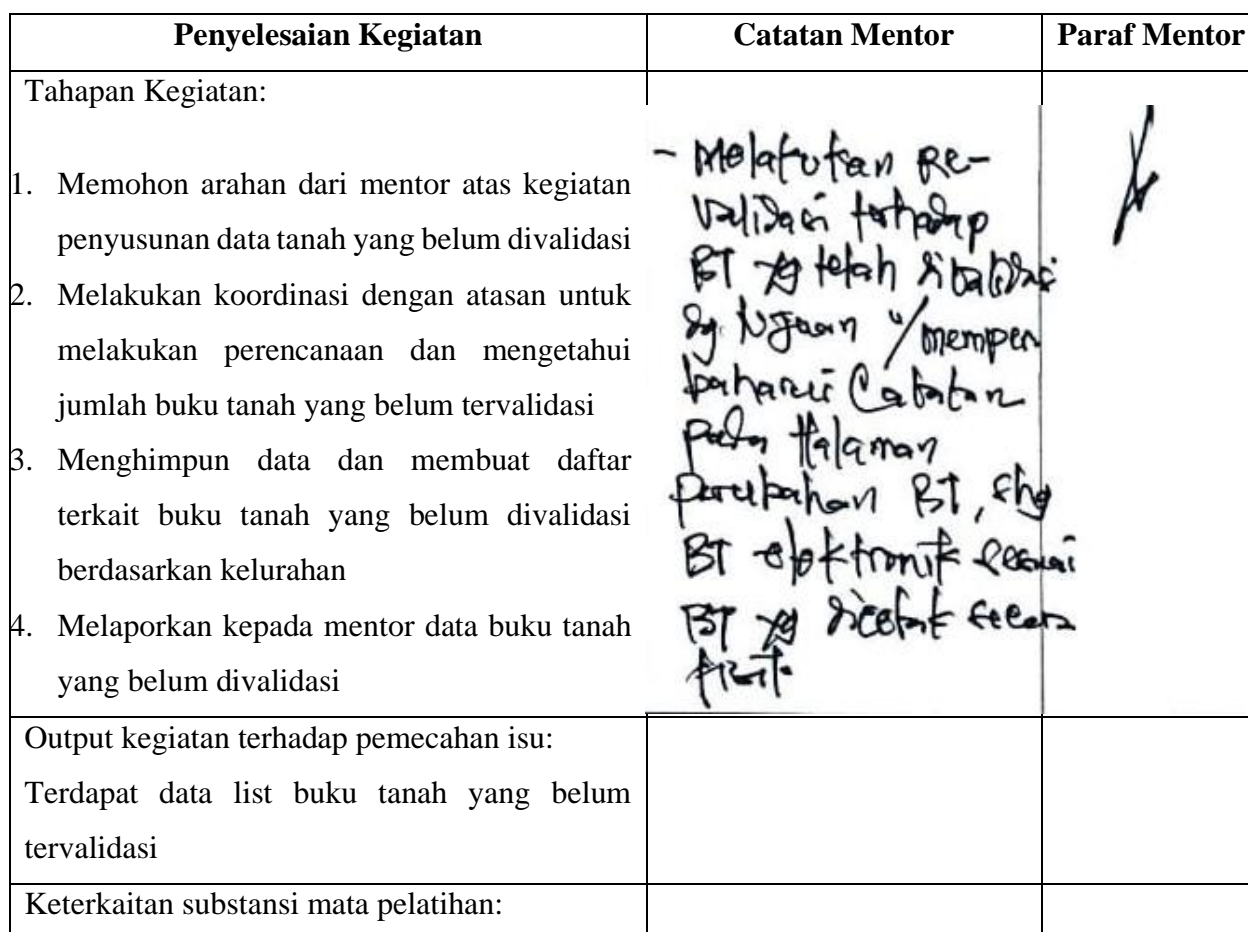 Penyelesaian Kegiatan
Catatan Mentor
Paraf Mentor
Tahapan Kegiatan:
1. Memohon arahan dari mentor atas kegiatan
penyusunan data tanah yang belum divalidasi
2. Melakukan koordinasi dengan atasan untuk
melakukan perencanaan dan mengetahui
jumlah buku tanah yang belum tervalidasi
3. Menghimpun data dan membuat daftar
terkait buku tanah yang belum divalidasi
berdasarkan kelurahan
4. Melaporkan kepada mentor data buku tanah
yang belum divalidasi
- Melakukan Re-
Validasi terhadap
BT yg telah divalidasi
dg. u/ memper
baharui Catatan
pada Halaman
perubahan BT, shg
BT elektronik sesuai
BT yg dicetak secara
fisik.
Output kegiatan terhadap pemecahan isu:
Terdapat data list buku tanah yang belum
tervalidasi
Keterkaitan substansi mata pelatihan: